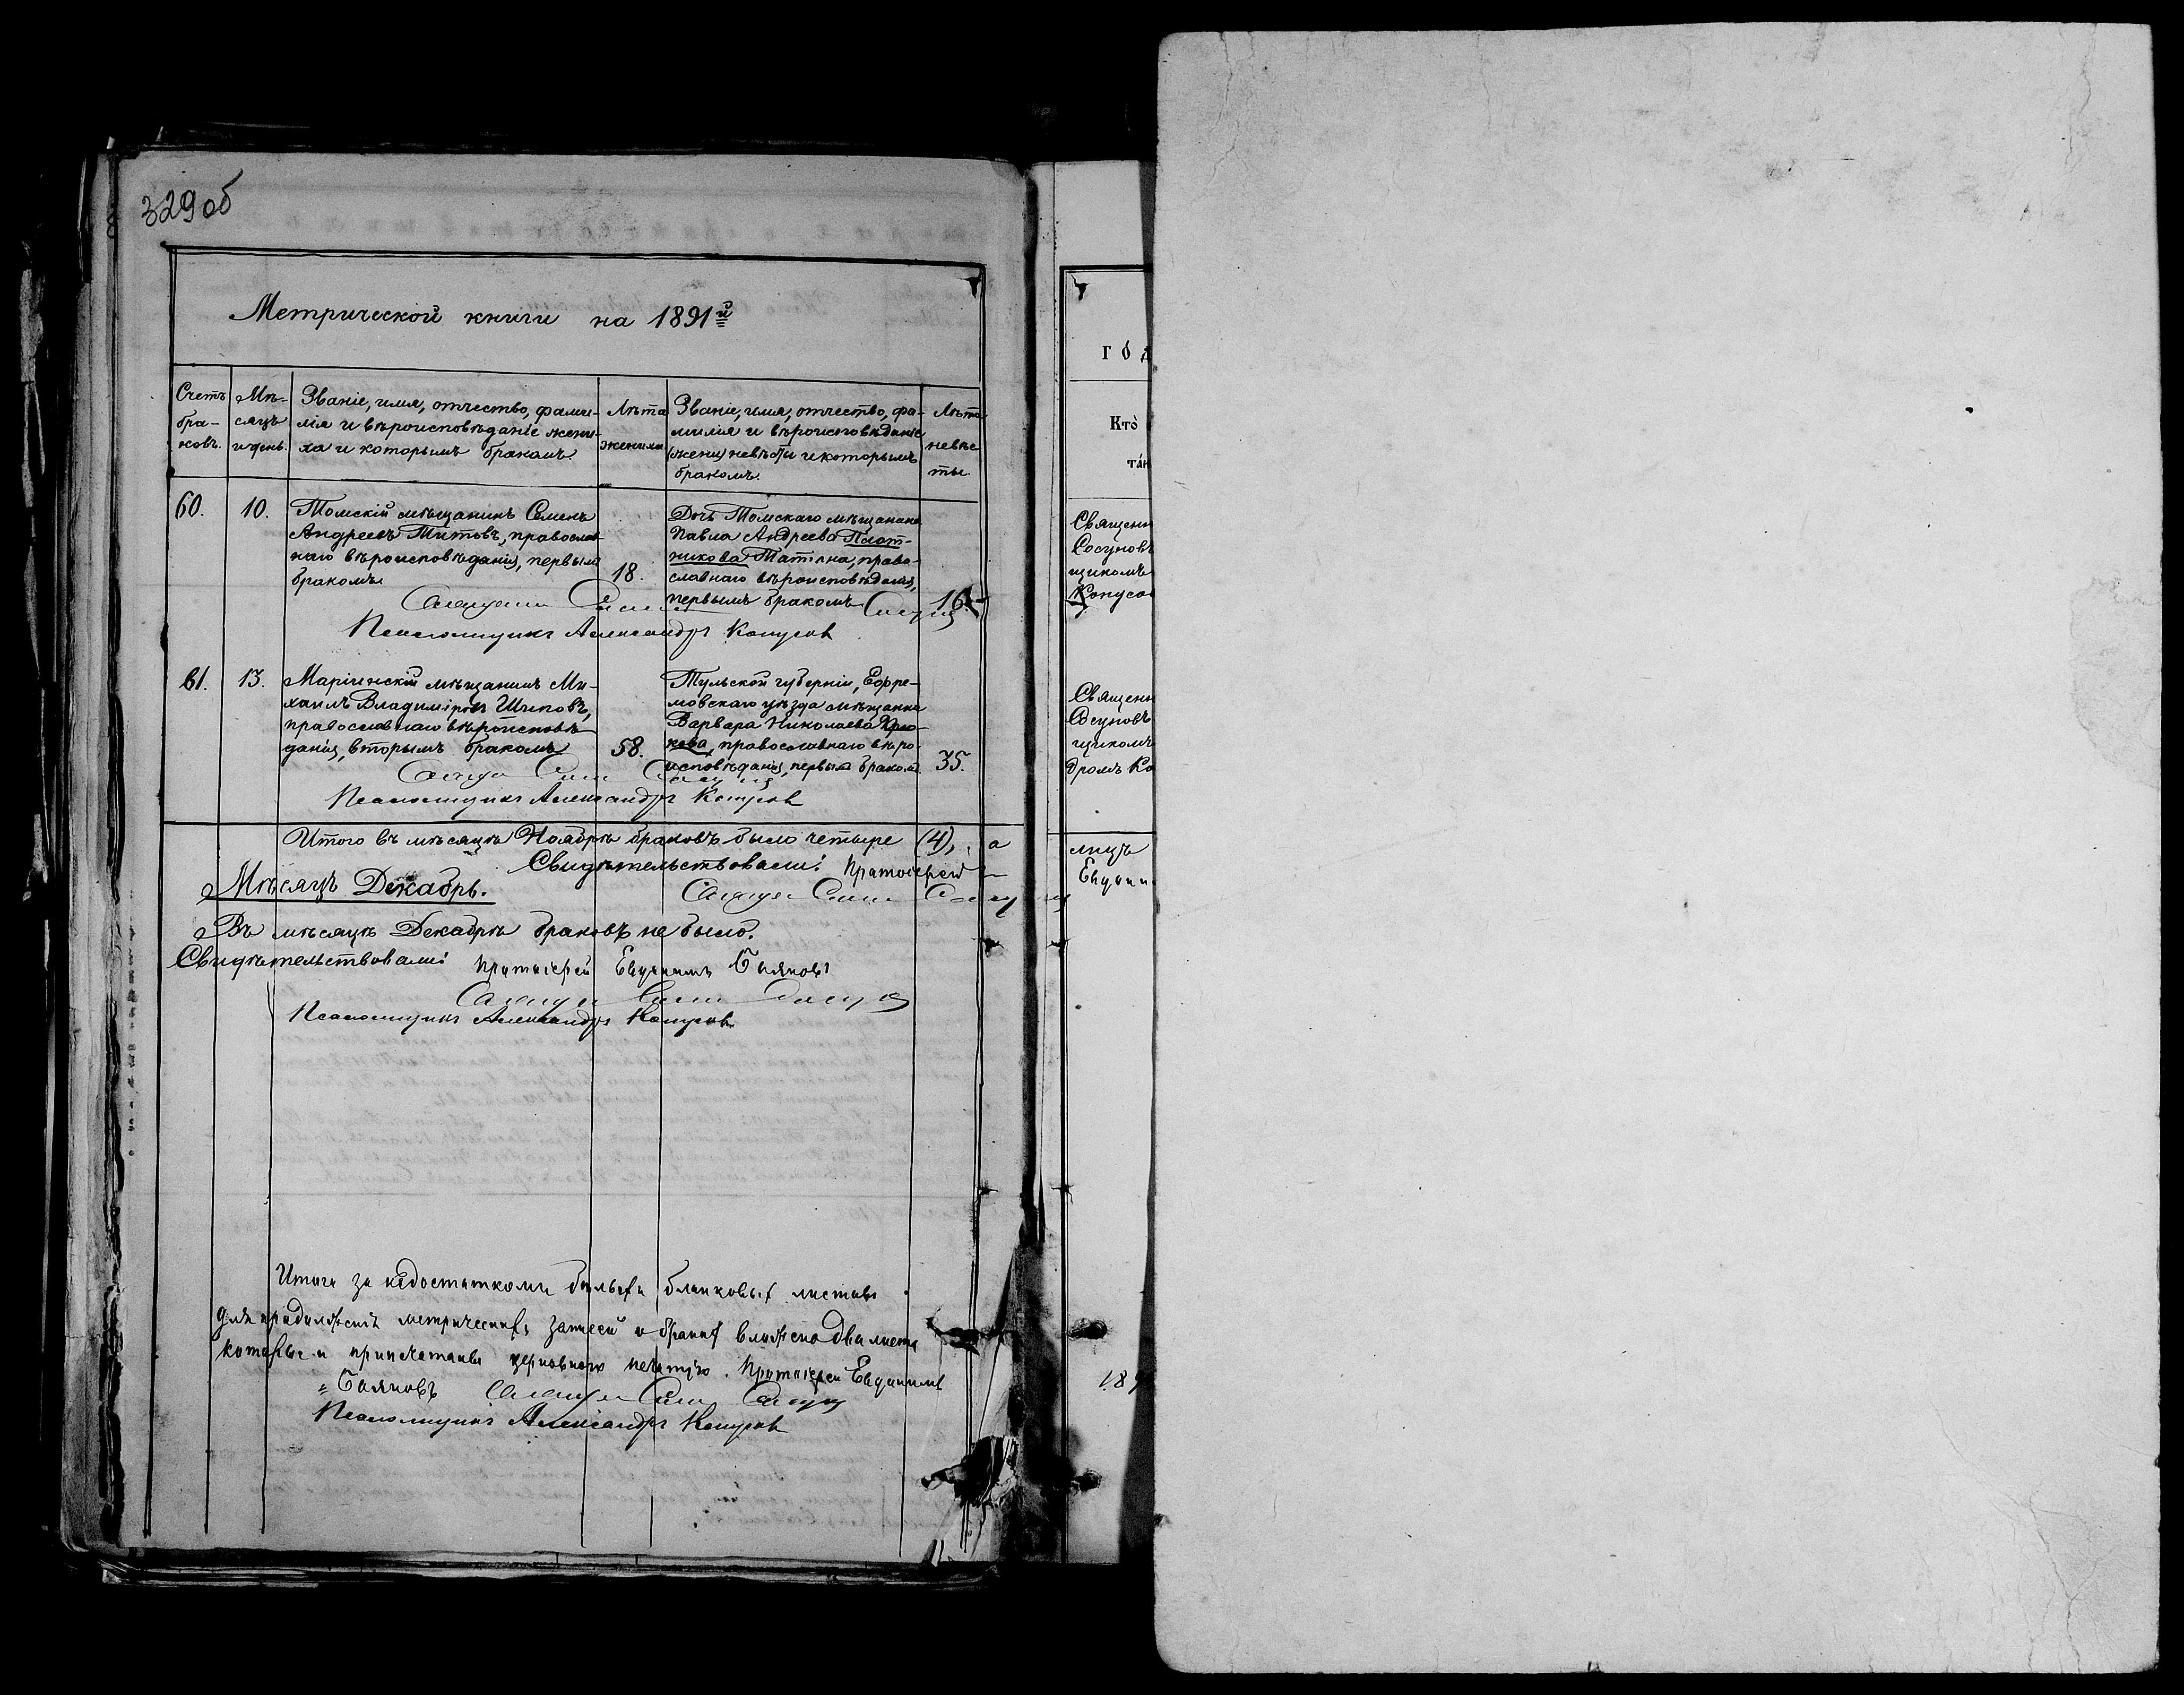 329 об
Метрической книги на 1891й
Счетъ бра-ковъ.
Мѣ-сяцъ и день.
Званіе, имя, отчество, фами-
лія и вѣроисповѣданіе жени-
ха и которымъ бракомъ.
Лѣта жениха
Званіе, имя, отчество, фа-
милія и вѣроисповѣданіе
(жены) невѣсты и которымъ
бракомъ.
Лѣта невѣс-ты.
60.
10.
Томскій мѣщанинъ Семенъ
Андреевъ Титовъ, православ-
наго вѣроисповѣданія, первымъ
бракомъ
18.
Дочь Томскаго мѣщанина
Павла Андреева Плот-
никова Татіана, право-
славнаго вѣроисповѣданія,
первымъ бракомъ
16.
Псаломщикъ Александръ Копусов
61.
13.
Маріинскій мѣщанинъ Ми-
хаилъ Владиміровъ Шиповъ,
православнаго вѣроисповѣ-
данія, вторымъ бракомъ
58.
Тульской губерніи, Ефре-
мовскаго уѣзда мѣщанка
Варвара Николаева
кова, православнаго вѣро-
исповѣданія, первымъ бракомъ
35.
Псаломщикъ Александръ Копусов
Итого въ мѣсяцѣ Ноябрѣ браковъ было четыре (4), а
Свидѣтельствовали: Протоіерей
Мѣсяцъ Декабрь.
Въ мѣсяцѣ Декабрѣ браковъ не было.
Свидѣтельствовали: Протоіерей Евдокимъ
Псаломщикъ Александръ Копусов
за недостаткомъ бланковыхъ листовъ
для метрическихъ записей о два листа
которые и припечатаны церковною печатію. Протоіерей Евдокимъ
Псаломщикъ Александръ Копусов
го́д
Кто̀
та́и
Священн
Сосуновъ
щикомъ
Копусо
Священн
Сосуновъ
щикомъ
дромъ Ко
лицъ
Евдоки
189